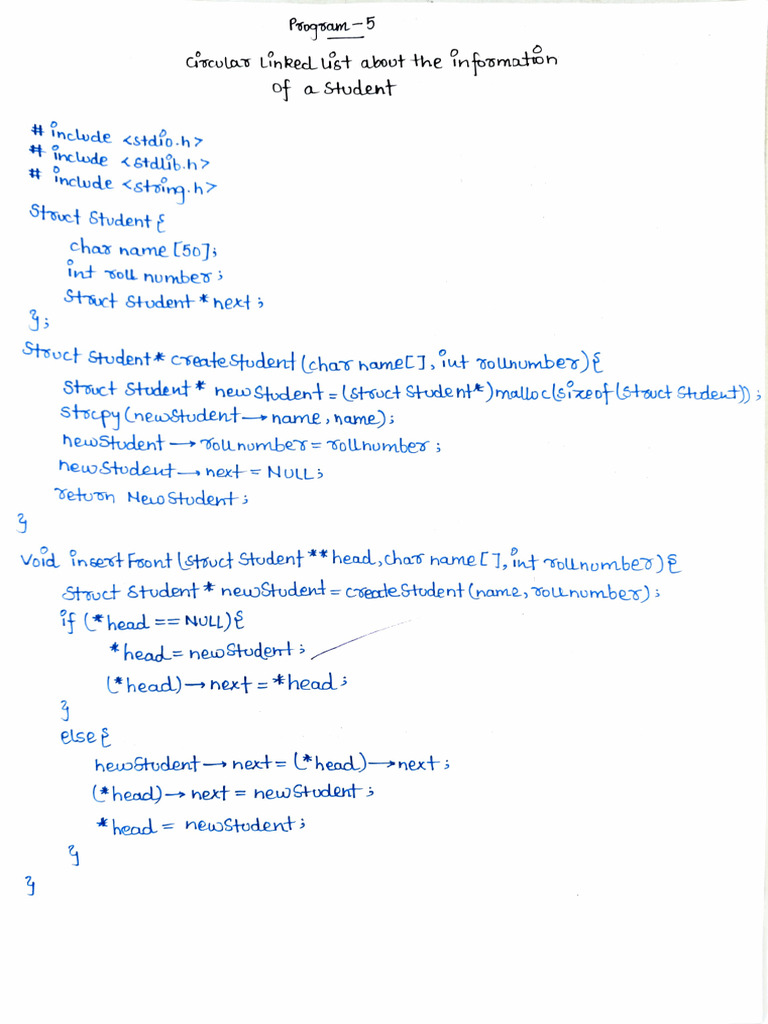 Program-5
Circular Linked List about the Information
Of a Student
# include <stdio.h>
# include <stdlib.h>
# include <string.h>
Struct Student {
char name [50];
int roll number;
Struct Student * next;
};
Struct Student* createStudent (char name[], int rollnumber) {
Struct Student* newStudent = (struct Student*) malloc(sizeof(Struct Student));
strcpy(newStudent → name, name);
newStudent → rollnumber = rollnumber;
newStudent → next = NULL;
return NewStudent;
}
Void insertFront (struct Student ** head, char name [], int rollnumber) {
Struct Student * newStudent = createStudent (name, rollnumber);
if (*head == NULL) {
*head = newStudent;
(*head) → next = *head;
}
else {
newStudent → next = (*head) → next;
(*head) → next = newStudent;
*head = newStudent;
}
}